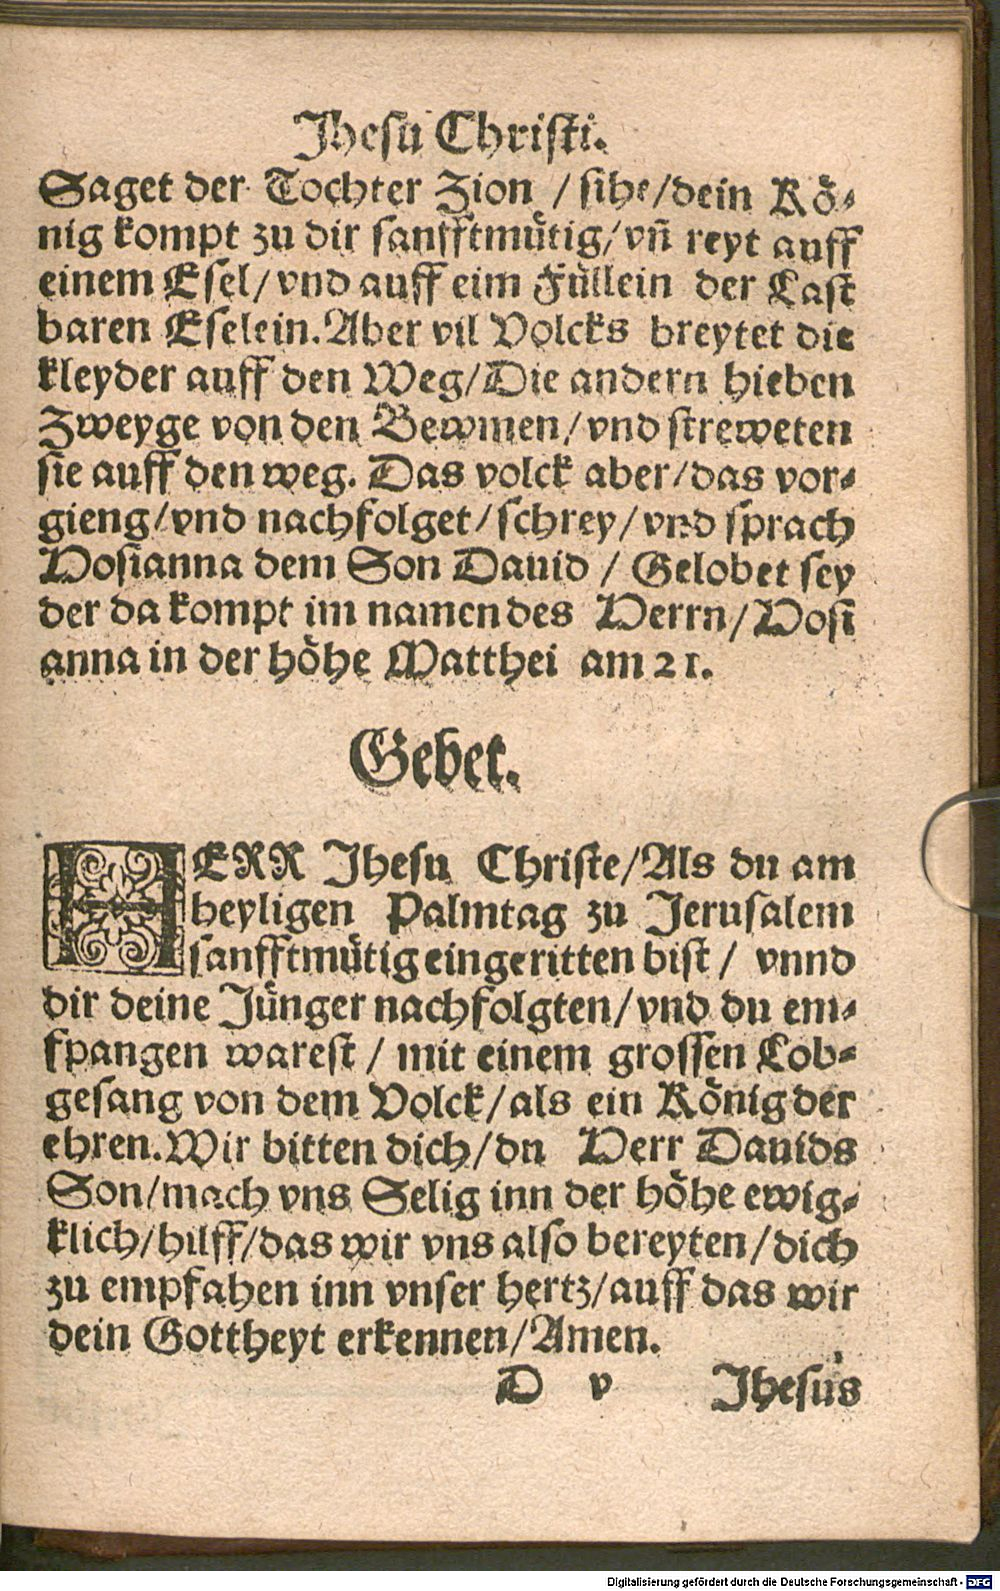 Jhesu Christi.
Saget der Tochter Zion / sihe/dein Kö-
nig kompt zu dir sanfftmütig/vñ reyt auff
einem Esel/vnd auff eim Füllein der Last
baren Eselein.Aber vil Volcks breytet die
kleyder auff den Weg/Die andern hieben
Zweyge von den Bewmen/vnd streweten
sie auff den weg. Das volck aber/das vor-
gieng/vnd nachfolget/schrey/vnd sprach
Hosianna dem Son Dauid / Gelobet sey
der da kompt im namen des Herrn/Hosi
anna in der höhe Matthei am 21.
Gebet.
HERR Jhesu Christe/Als du am
heyligen Palmtag zu Jerusalem
sanfftmütig eingeritten bist / vnnd
dir deine Jünger nachfolgten/vnd du em-
fpangen warest / mit einem grossen Lob-
gesang von dem Volck/als ein König der
ehren.Wir bitten dich/du Herr Dauids
Son/mach vns Selig inn der höhe ewig-
klich/hilff/das wir vns also bereyten/dich
zu empfahen inn vnser hertz/auff das wir
dein Gottheyt erkennen/Amen.
D v Jhesus
Digitalisierung gefördert durch die Deutsche Forschungsgemeinschaft - DFG